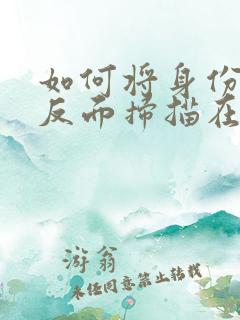 如何将身份
反而扫描在
游翁
未经同意禁止转载